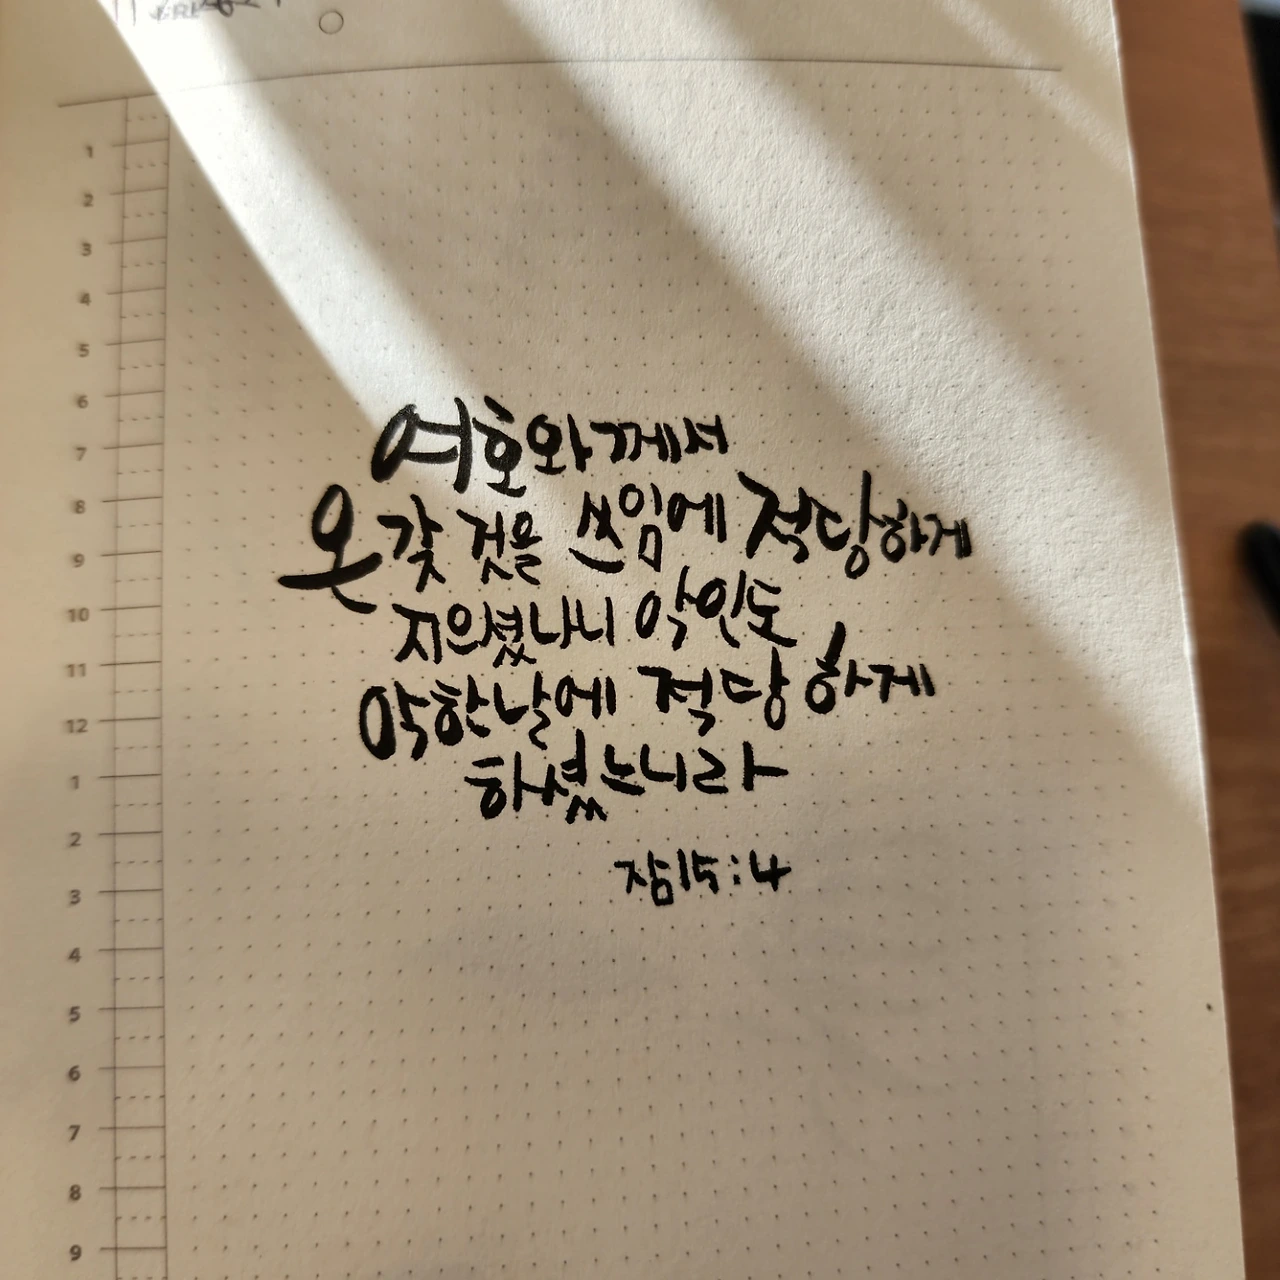 여호와께서
온갖 것을 쓰임에 적당하게
지으셨나니 악인도
악한날에 적당하게
하셨느니라
잠15:4
1
2
3
4
5
6
7
8
9
10
11
12
1
2
3
4
5
6
7
8
9